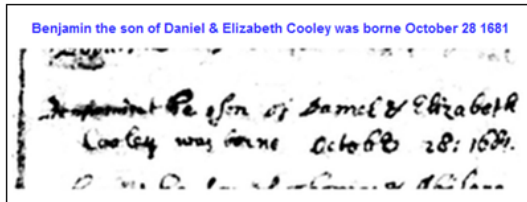 Benjamin the son of Daniel & Elizabeth Cooley was borne October 28 1681
Benjamin the son of Daniel & Elizabeth
Cooley was borne October 28: 1681.